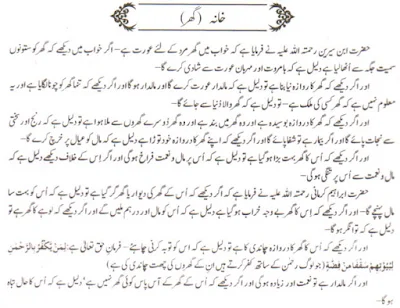 خانہ (گھر)
حضرت ابن سیرین رحمتہ اللہ علیہ نے فرمایا ہے کہ خواب میں گھر مرد کے لئے عورت ہے۔ اگر خواب میں دیکھے کہ گھر کو ستونوں
سمیت جگہ سے اُٹھا لیا ہے دلیل ہے کہ بامروت اور مہربان عورت سے شادی کرے گا۔
اور اگر دیکھے کہ گھر کا دروازہ نیا بنا ہے تو دلیل ہے کہ مالدار عورت کرے گا اور مالدار ہو گا اور اگر دیکھے کہ تنہا گھر کو چونا لگایا ہے اور یہ
معلوم نہیں ہے کہ گھر کسی کی ملک ہے۔ تو دلیل ہے کہ گھر والا دُنیا سے جائے گا۔
اور اگر دیکھے کہ گھر کا دروازہ بوسیدہ ہے اور وہ گھر میں بند ہے اور وہ گھر دوسرے گھروں سے ملا ہوا ہے تو دلیل ہے کہ رنج اور سختی
سے نجات پائے گا اور اگر بیمار ہے تو شفا پائے گا اور اگر دیکھے کہ اپنے گھر کا دروازہ خود توڑا ہے دلیل ہے کہ مال کو عیال پر خرچ کرے گا۔
اور اگر دیکھے کہ اُس کا گھر بہت بڑا ہو گیا ہے تو دلیل ہے کہ اُس پر مال و نعمت فراخ ہو گی اور اگر اِس کے خلاف دیکھے دلیل ہے کہ
مال و نعمت اُس پر تنگی ہو گی۔
حضرت ابراہیم کرمانی رحمتہ اللہ علیہ نے فرمایا ہے کہ اگر دیکھے کہ اُس کے گھر کی دیوار یا گھر گر گیا ہے تو دلیل ہے کہ اُس کو بہت سا
مال پہنچے گا۔ اور اگر دیکھے کہ اُس کا گھر بے وجہ خراب ہو گیا ہے دلیل ہے کہ اُس کو مال اور درہم ملیں گے اور اگر دیکھے کہ لوہے کا گھر ہے تو
دلیل ہے کہ توانگر ہو گا۔
اور اگر دیکھے کہ اُس کا گھر کا دروازہ چاندی کا ہے تو دلیل ہے کہ اُس کو توبہ کرنی چاہئے۔ فرمان حق تعالیٰ ہے: لِمَنْ يَّكْفُرُ بِالرَّحْمٰنِ
لِبُيُوْتِهِمْ سُقُفًا مِّنْ فِضَّةٍ (جو لوگ رحمٰن کے ساتھ کفر کرتے ہیں ان کے گھروں کی چھت چاندی کی ہے)
اور اگر دیکھے کہ اُس کے گھر کے آس پاس کوئی گھر نہیں ہے دلیل ہے کہ اُس کا حال تباہ
ہو گا۔